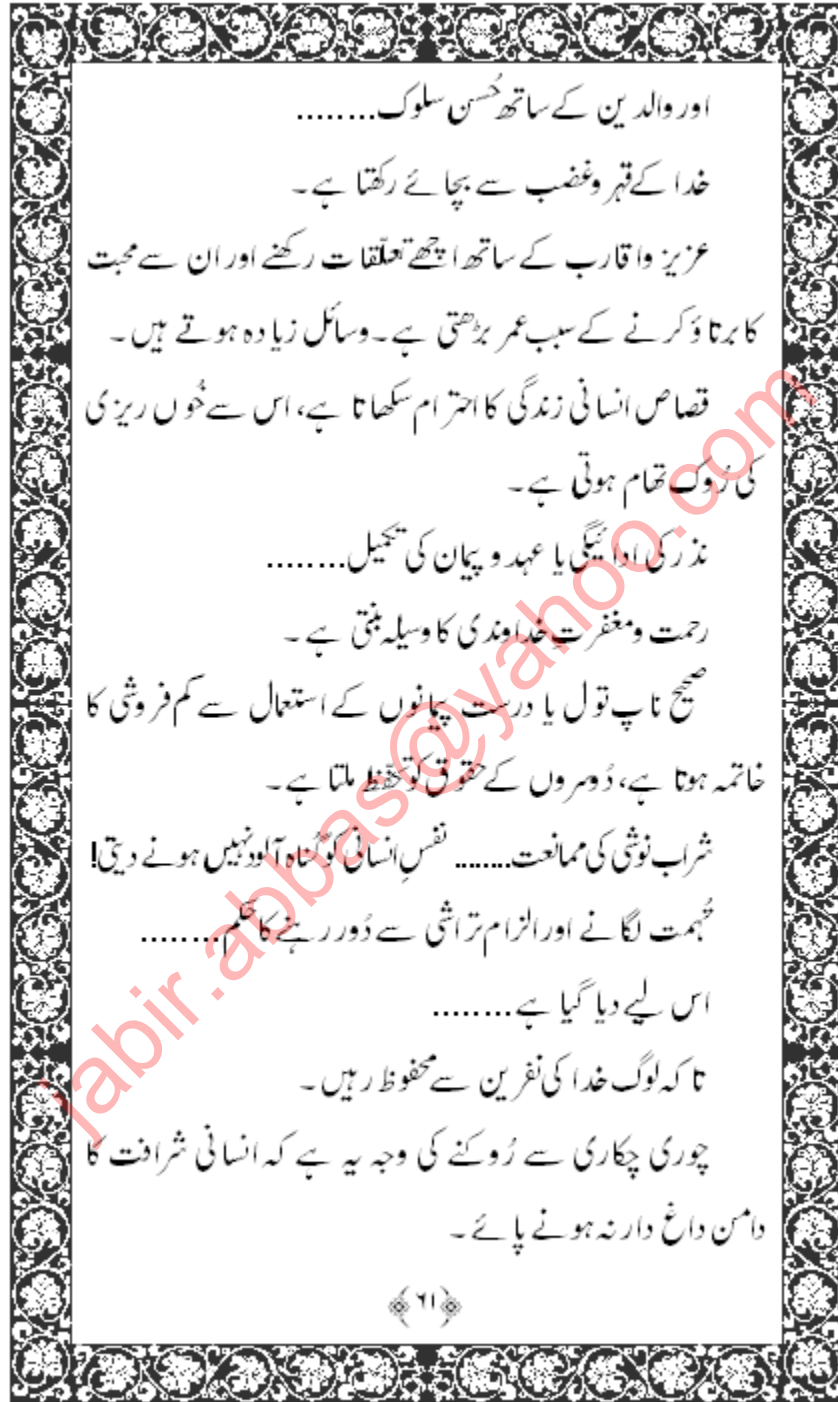 اور والدین کے ساتھ حُسن سلوک........
خدا کے قہر وغضب سے بچائے رکھتا ہے۔
عزیز واقارب کے ساتھ اچھے تعلّقات رکھنے اور ان سے محبت
کا برتاؤ کرنے کے سبب عمر بڑھتی ہے۔وسائل زیادہ ہوتے ہیں۔
قصاص انسانی زندگی کا احترام سکھاتا ہے، اس سے خُوں ریزی
کی رُوک تھام ہوتی ہے۔
نذر کی ادائیگی یا عہد و پیمان کی تکمیل........
رحمت ومغفرتِ خداوندی کا وسیلہ بنتی ہے۔
صحیح ناپ تول یا درست پیمانوں کے استعمال سے کم فروشی کا
خاتمہ ہوتا ہے، دُوسروں کے حقوق کو تحفّظ ملتا ہے۔
شراب نوشی کی ممانعت........ نفسِ انسانی کو گناہ آلود نہیں ہونے دیتی!
تُہمت لگانے اور الزام تراشی سے دُور رہنے کا حکم........
اس لیے دیا گیا ہے........
تا کہ لوگ خدا کی نفرین سے محفوظ رہیں۔
چوری چکاری سے رُوکنے کی وجہ یہ ہے کہ انسانی شرافت کا
دامن داغ دار نہ ہونے پائے۔
﴿۶۱﴾
jabir.abbas@yahoo.com